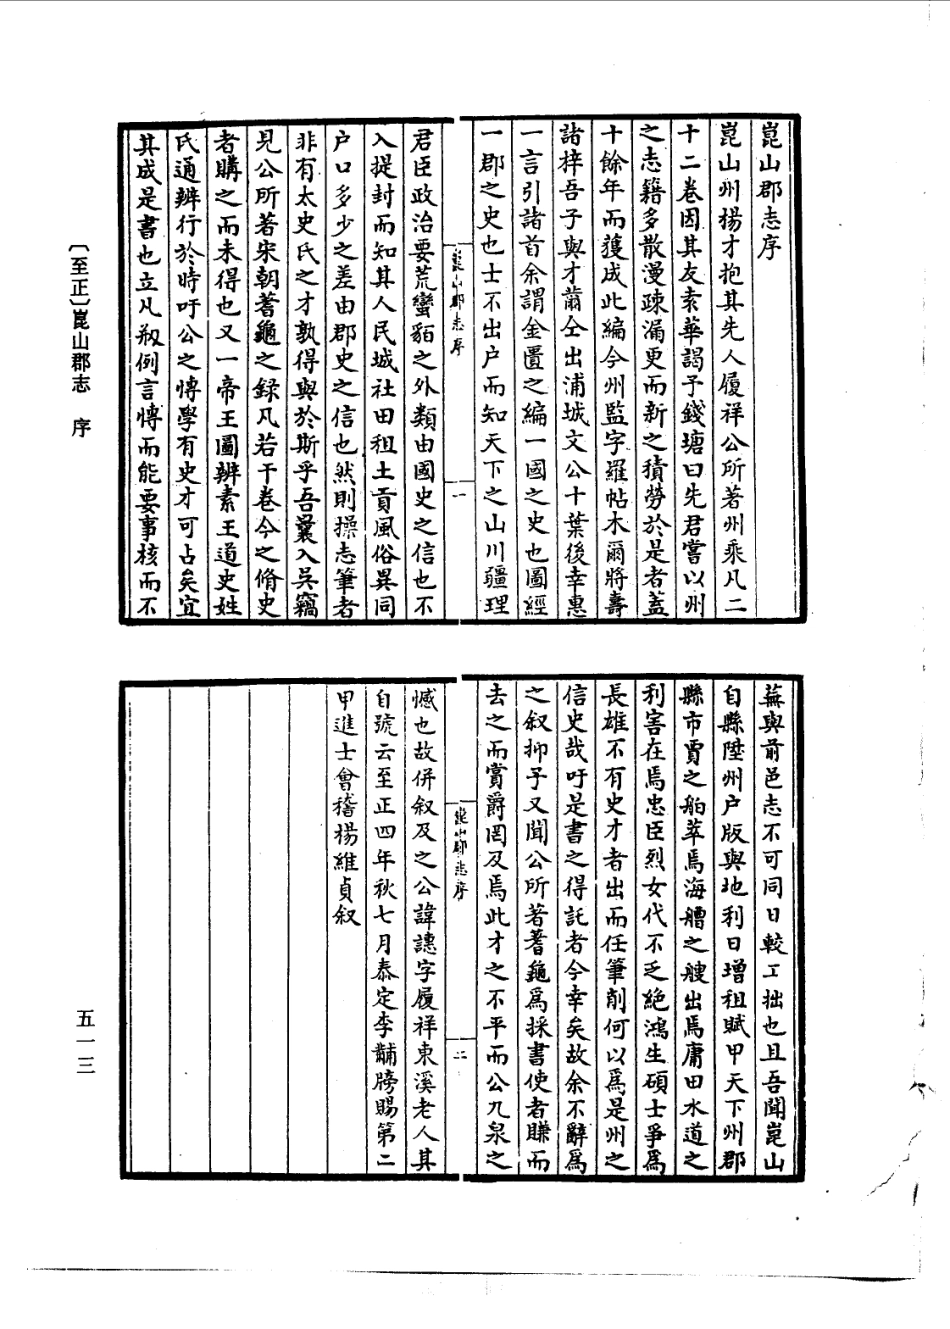 崑山郡志序
崑山州楊才抱其先人履祥公所著州乘凡二
十二卷因其友袁華謁予錢塘曰先君嘗以州
之志籍多散漫疎漏更而新之積勞於是者蓋
十餘年而獲成此編今州監字羅帖木爾將壽
諸梓吾子與才葡仝出浦城文公十葉後幸惠
一言引諸首余謂金匱之編一國之史也圖經
一郡之史也士不出户而知天下之山川疆理
崑山郡志序
一
君臣政治要荒蠻貊之外類由國史之信也不
入提封而知其人民城社田租土貢風俗異同
户口多少之差由郡史之信也然則操志筆者
非有太史氏之才孰得與於斯乎吾曩入吳竊
見公所著宋朝蓍龜之録凡若干卷今之脩史
者購之而未得也又一帝王圖辨素王道史姓
氏通辨行於時吁公之博學有史才可占矣宜
其成是書也立凡叙例言博而能要事核而不
〔至正〕崑山郡志 序
蕪與前邑志不可同日較工拙也且吾聞崑山
自縣陞州户版與地利日增租賦甲天下州郡
縣市賈之舶萃焉海艚之艘出焉庸田水道之
利害在焉忠臣烈女代不乏絕鴻生碩士爭爲
長雄不有史才者出而任筆削何以爲是州之
信史哉吁是書之得託者今幸矣故余不辭爲
之叙抑予又聞公所著蓍龜爲採書使者賺而
去之而賞爵罔及焉此才之不平而公九泉之
崑山郡志序
二
憾也故併叙及之公諱譓字履祥東溪老人其
自號云至正四年秋七月泰定李黼牓賜第二
甲進士會稽楊維貞叙
五一三